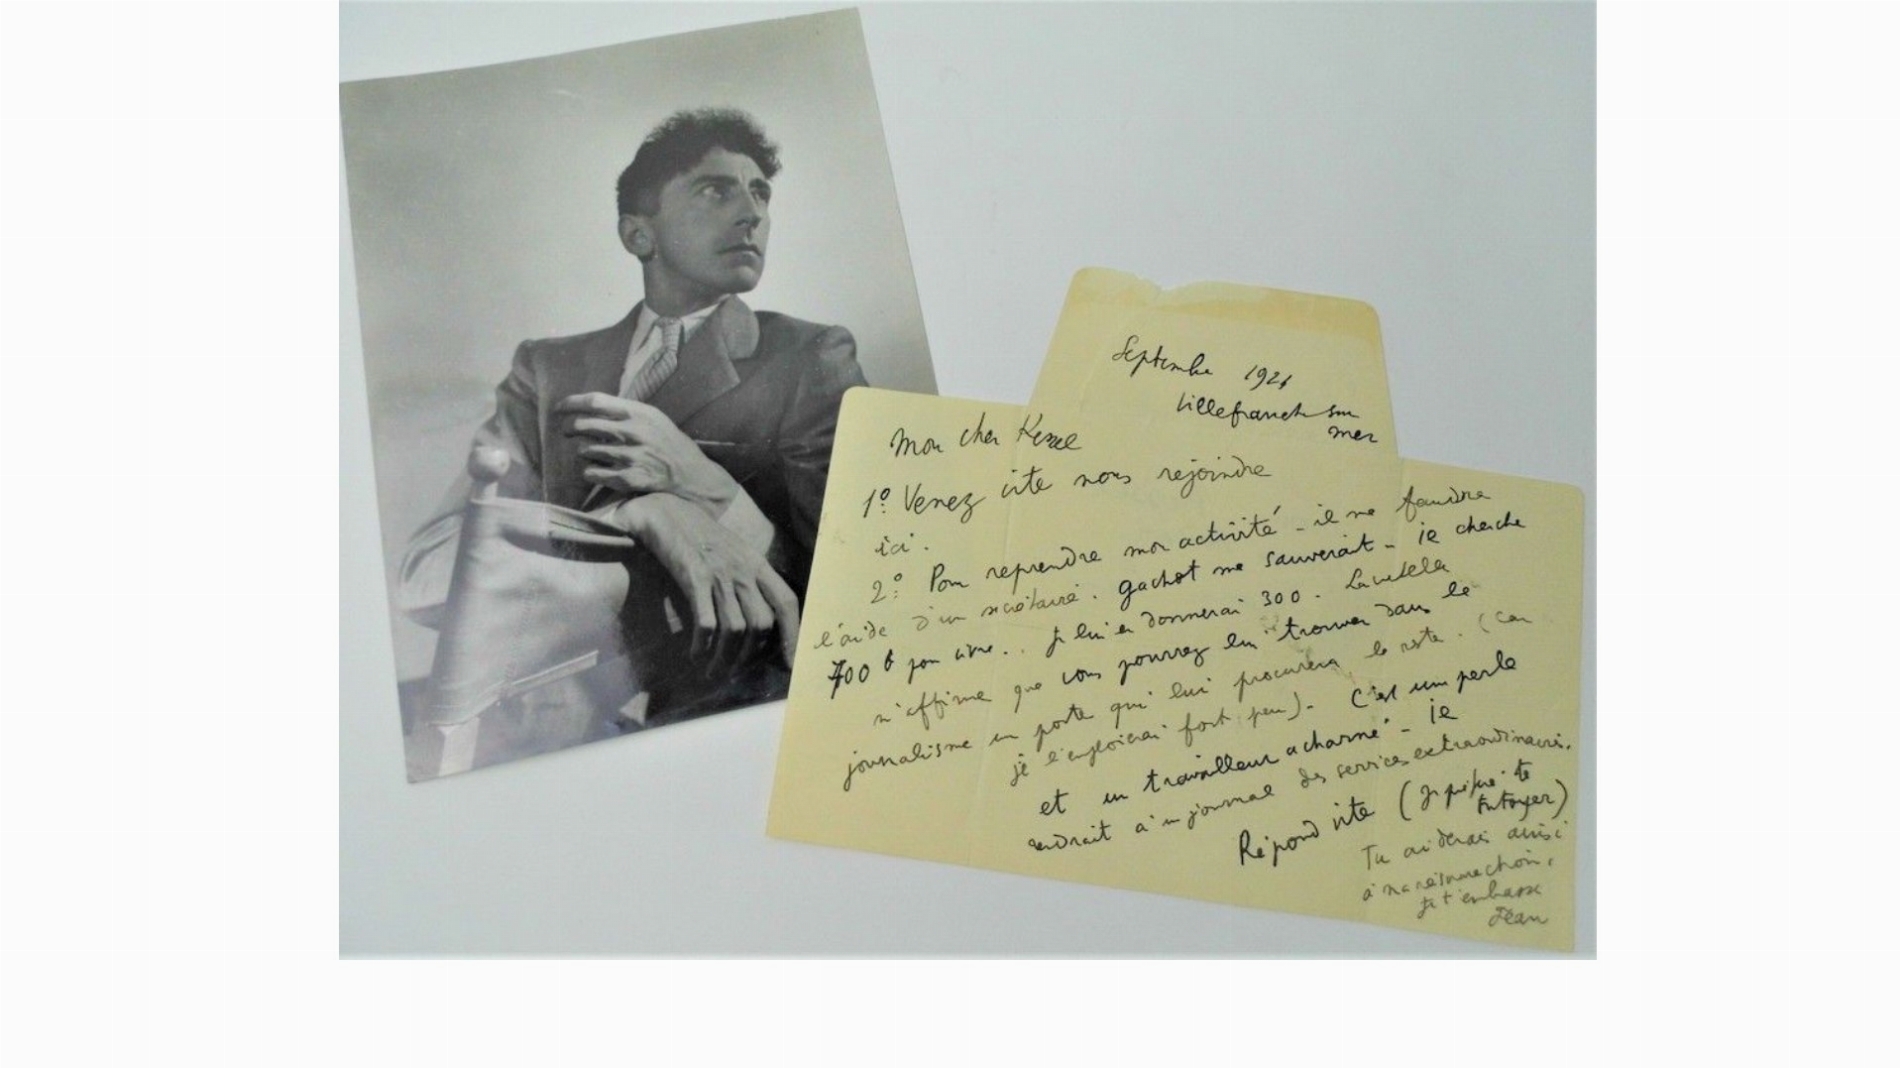 Septembre 192
Villefranche sur
mer
Mon cher Kessel
1º Venez vite nous rejoindre
ici.
2º Pour reprendre mon activité - il me faudra
l'aide d'un secrétaire. Gachot me sauverait - il cherche
700 f pour vivre.. je lui en donnerai 300.
m'affirme que vous pourrez lui trouver dans le
journalisme un poste qui lui procurera le reste. (Car
je l'emploierai fort peu). C'est une perle
et un travailleur acharné - il
rendrait à un journal des services extraordinaires.
Répond vite (je préfère te
tutoyer)
Tu aiderais ainsi
à ma résurrection,
je t'embrasse
Jean